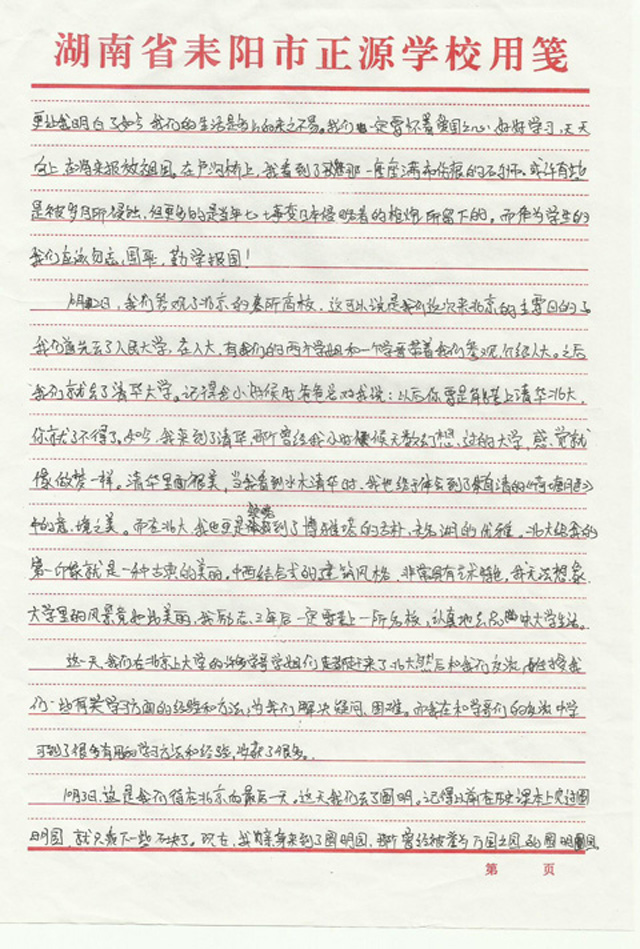 湖南省耒阳市正源学校用笺
更让我明白了如今我们的生活是多么的来之不易。我们一定要怀着爱国之心好好学习,天天
向上,去将来报效祖国。在卢沟桥上,我看到了那一座座满布伤痕的石狮。或许有些
是被岁月所侵蚀,但更多的是当年七七事变日本侵略者的枪炮所留下的。而作为学生的
我们应该勿忘国耻,勤学报国!
10月2日,我们参观了北京的几所高校,这可以说是我们这次来北京的主要目的了
我们首先去了人民大学,在人大,有我们的两个学姐和一个学哥带着我们参观,介绍人大。之后
我们就去了清华大学。记得小时候时爸爸总对我说:以后你要是能考上清华北大,
你就了不得了。如今,我来到了清华,那所曾经我小时候无数次幻想过的大学,感觉就
像做梦一样。清华里面很美,当我看到水木清华时,我也终于体会到了朱自清的《荷塘月色》
中的意境之美。而在北大,我也更是感到了博雅塔的古朴,未名湖的优雅。北大给我的
第一印象就是一种古典的美丽。中西结合式的建筑风格,非常具有艺术特色,我无法想象
大学里的风景竟如此美丽,我励志,三年后一定要考上一所名校,认真地去感受大学生活。
这一天,我们在北京上大学的许多学哥学姐们也都来了北大然后和我们交流,
们一些有关学习方面的经验和方法,为我们解决疑问、困难。而我在和学哥们的交流中学
习到了很多有用的学习方法和经验,收获了很多。
10月3日,这是我们待在北京的最后一天。这天我们去了圆明。记得以前在历史课本上见过圆
明园,就只剩下一些石块了。现在,我亲身来到了圆明园,那所曾经被誉为万园之园的圆明园,
第 页